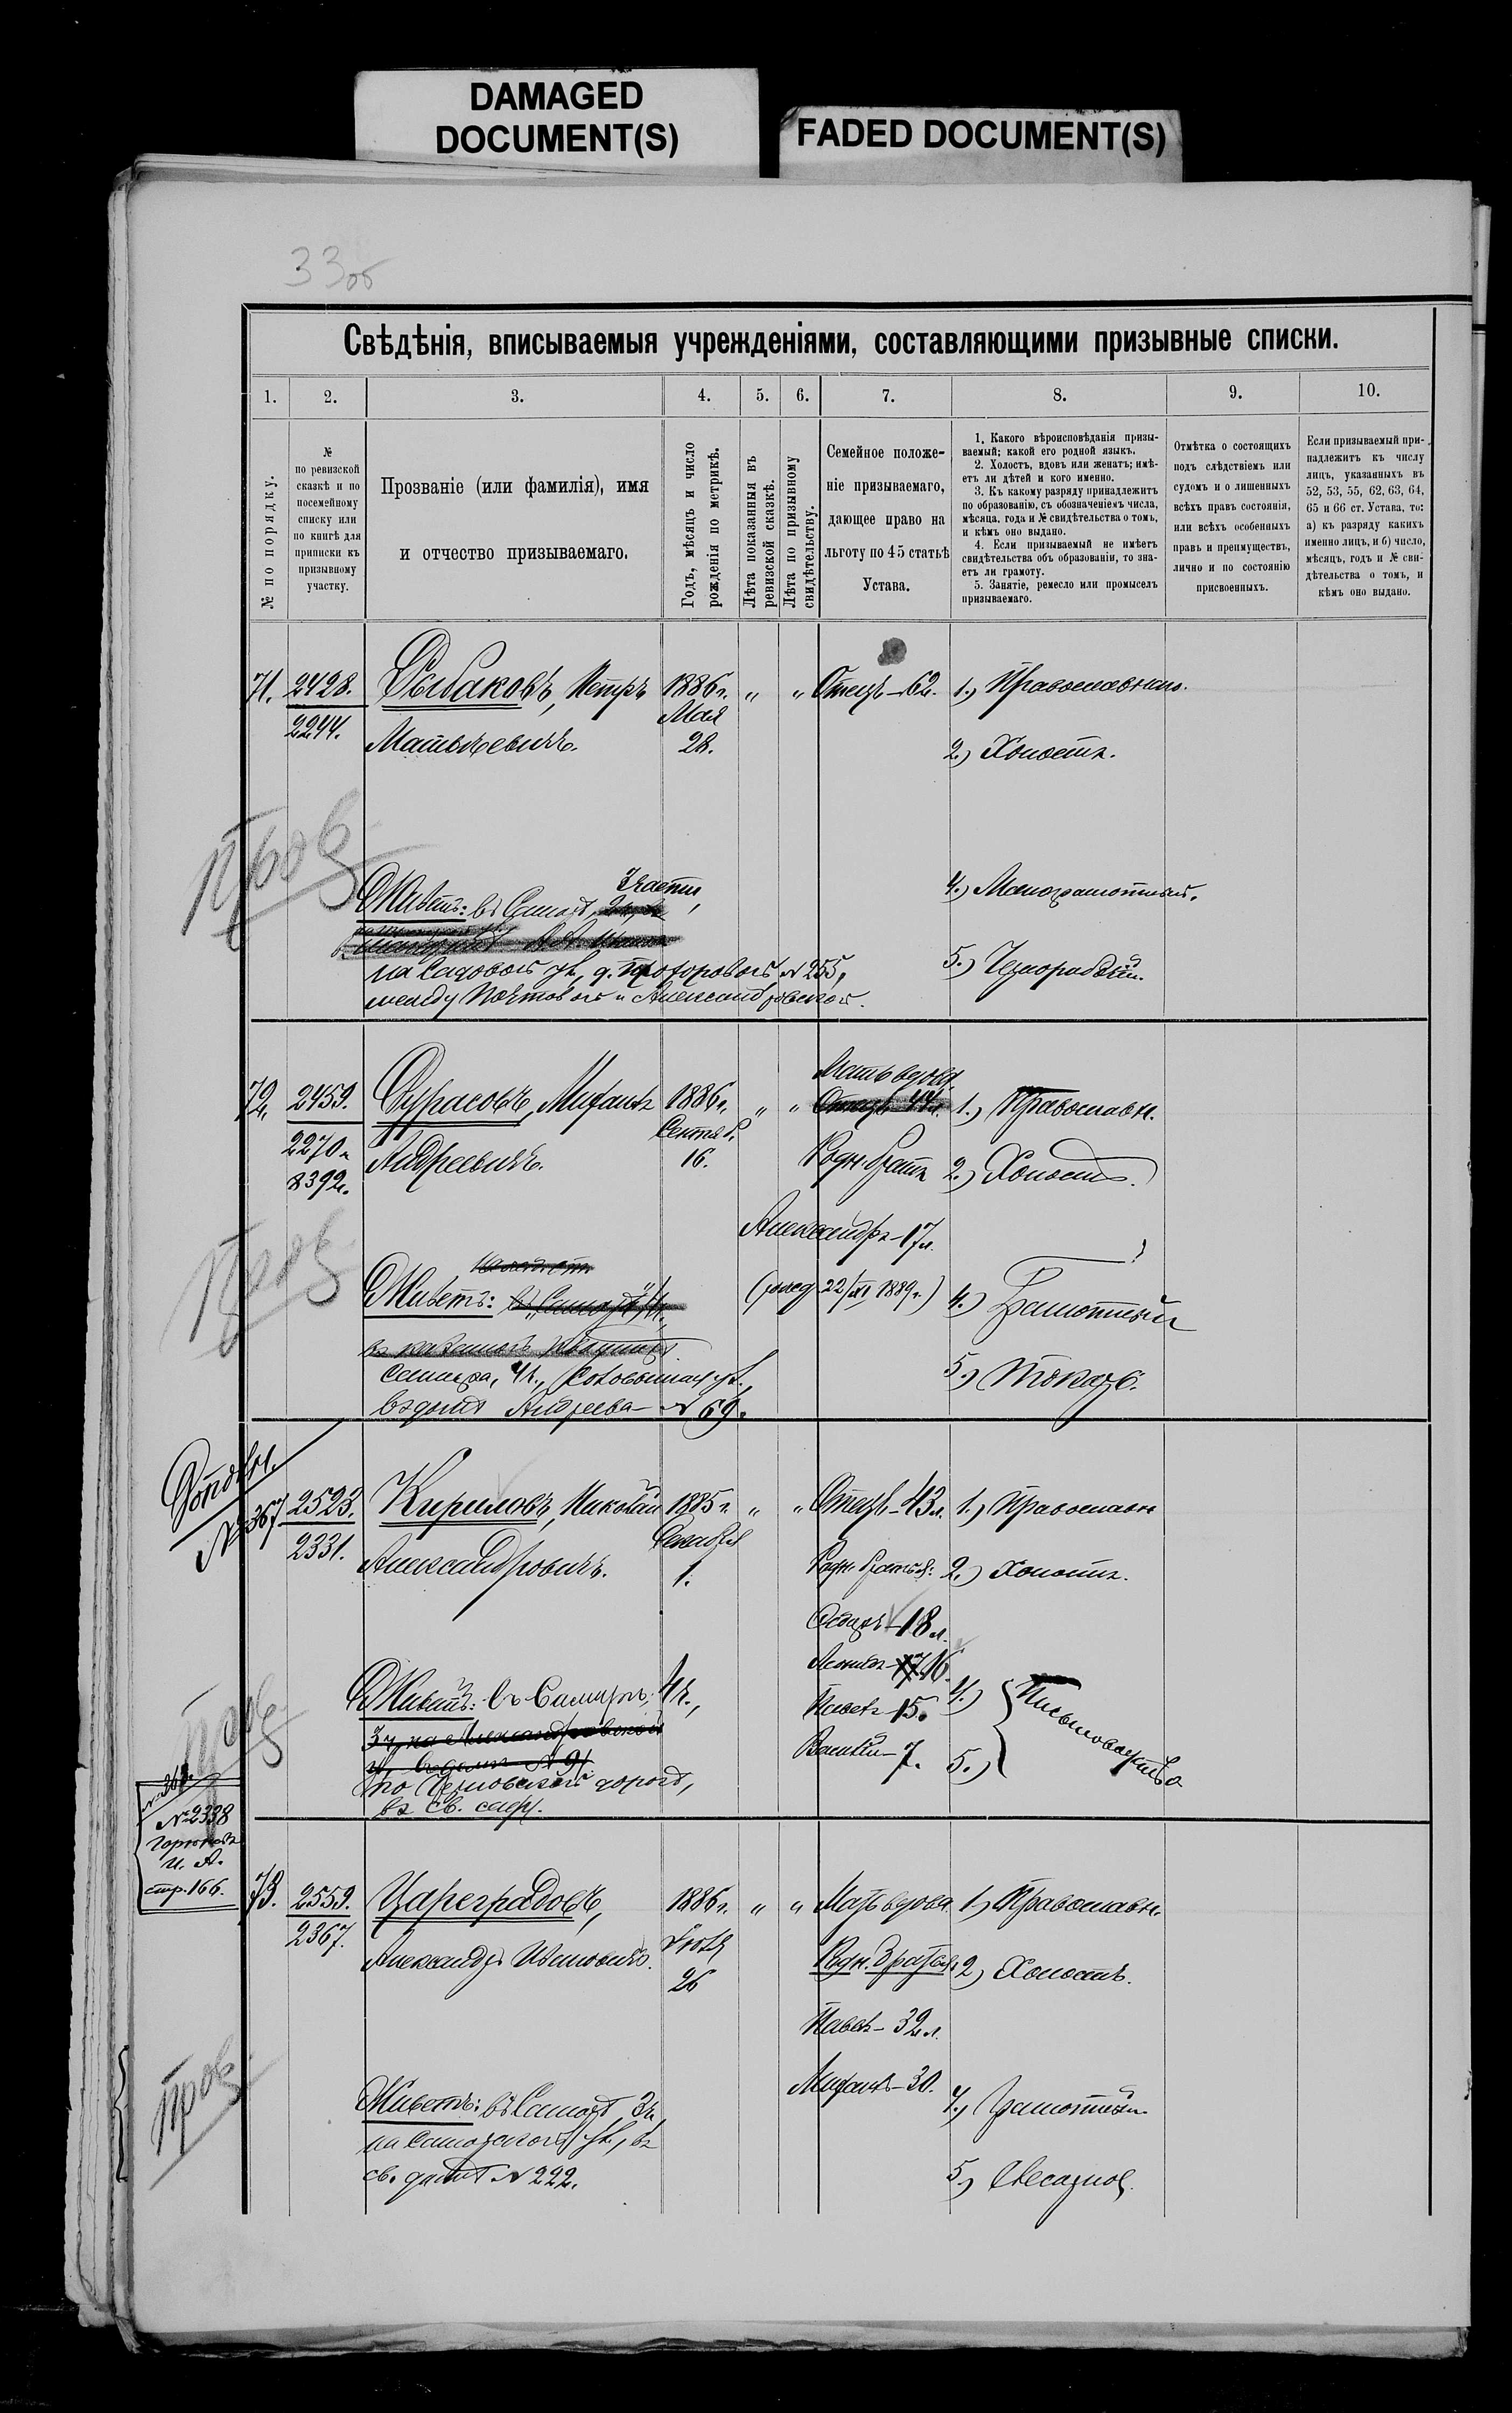 DAMAGED
DOCUMENT(S)
FADED DOCUMENT(S)
33об
Свѣдѣнія, вписываемыя учрежденіями, составляющими призывные списки.
1. 2. 3. 4. 5. 6. 7. 8. 9. 10.
№ по порядку.
№
по ревизской
сказкѣ и по
посемейному
списку или
по книгѣ для
приписки къ
призывному
участку.
Прозваніе (или фамилія), имя
и отчество призываемаго.
Годъ, мѣсяцъ и число
рожденія по метрикѣ.
Лѣта показанныя въ
ревизской сказкѣ.
Лѣта по призывному
свидѣтельству.
Семейное положе-
ніе призываемаго,
дающее право на
льготу по 45 статьѣ
Устава.
1. Какого вѣроисповѣданія призы-
ваемый; какой его родной языкъ.
2. Холостъ, вдовъ или женатъ; имѣ-
етъ ли дѣтей и кого именно.
3. Къ какому разряду принадлежитъ
по образованію, съ обозначеніемъ числа,
мѣсяца, года и № свидѣтельства о томъ,
и кѣмъ оно выдано.
4. Если призываемый не имѣетъ
свидѣтельства объ образованіи, то зна-
етъ ли грамоту.
5. Занятіе, ремесло или промыселъ
призываемаго.
Отмѣтка о состоящихъ
подъ слѣдствіемъ или
судомъ и о лишенныхъ
всѣхъ правъ состоянія,
или всѣхъ особенныхъ
правъ и преимуществъ,
лично и по состоянію
присвоенныхъ.
Если призываемый при-
надлежитъ къ числу
лицъ, указанныхъ въ
52, 53, 55, 62, 63, 64,
65 и 66 ст. Устава, то:
а) къ разряду какихъ
именно лицъ, и б) число,
мѣсяцъ, годъ и № сви-
дѣтельства о томъ, и
кѣмъ оно выдано.
71. 2428. Рыбаковъ, Петръ 1886г. „ „ Отецъ - 62. 1.) Православный.
2244. Матвѣевичъ. Мая
28. 2.) Холостъ.
Пров
3 части,
Живетъ: въ Самарѣ,
4.) Малограмотный.
на Садовой ул., д. № 255,
между Почтовой и Александровской.
5.) Чернорабочій.
Мать вдова.
72. 2459. Сурасовъ, Михаилъ 1886г. „ „ Отецъ 1.) Православн.
2270 Андреевичъ. Сентяб.
8392. 16. Родн. братъ 2.) Холостъ.
Александръ - 17л.
Пров
Живетъ: (род 22/XI 1889г.) 4.) Грамотный
Самара, 4ч.,
въ домѣ Андреева № 69.
5.) Токарь.
№ 367
2523. Кириловъ, Николай 1885г. „ „ Отецъ - 43л. 1.) Православн
2331. Александровичъ. Декабря
1. Родн. братья: 2.) Холостъ.
18л.
Леонидъ - 16.
Живетъ: въ Самарѣ, 4ч., Павелъ - 15. 4.) Письмоводство
3ч, на Александровской
Василій - 7. 5.)
дорогѣ,
въ св.
Пров
№ 2338
И. А.
стр. 166.
73. 2559. Цареградовъ, 1886г. „ „ Мать вдова. 1.) Православн.
2367. Александръ Ивановичъ. Іюля
26 Родн. братья: 2.) Холостъ.
Павелъ - 32л.
Михаилъ - 30.
Пров
Живетъ: въ Самарѣ, 3ч, 4.) Грамотный.
на Самарской ул., въ
св. домѣ № 222. 5.) Слесарное.